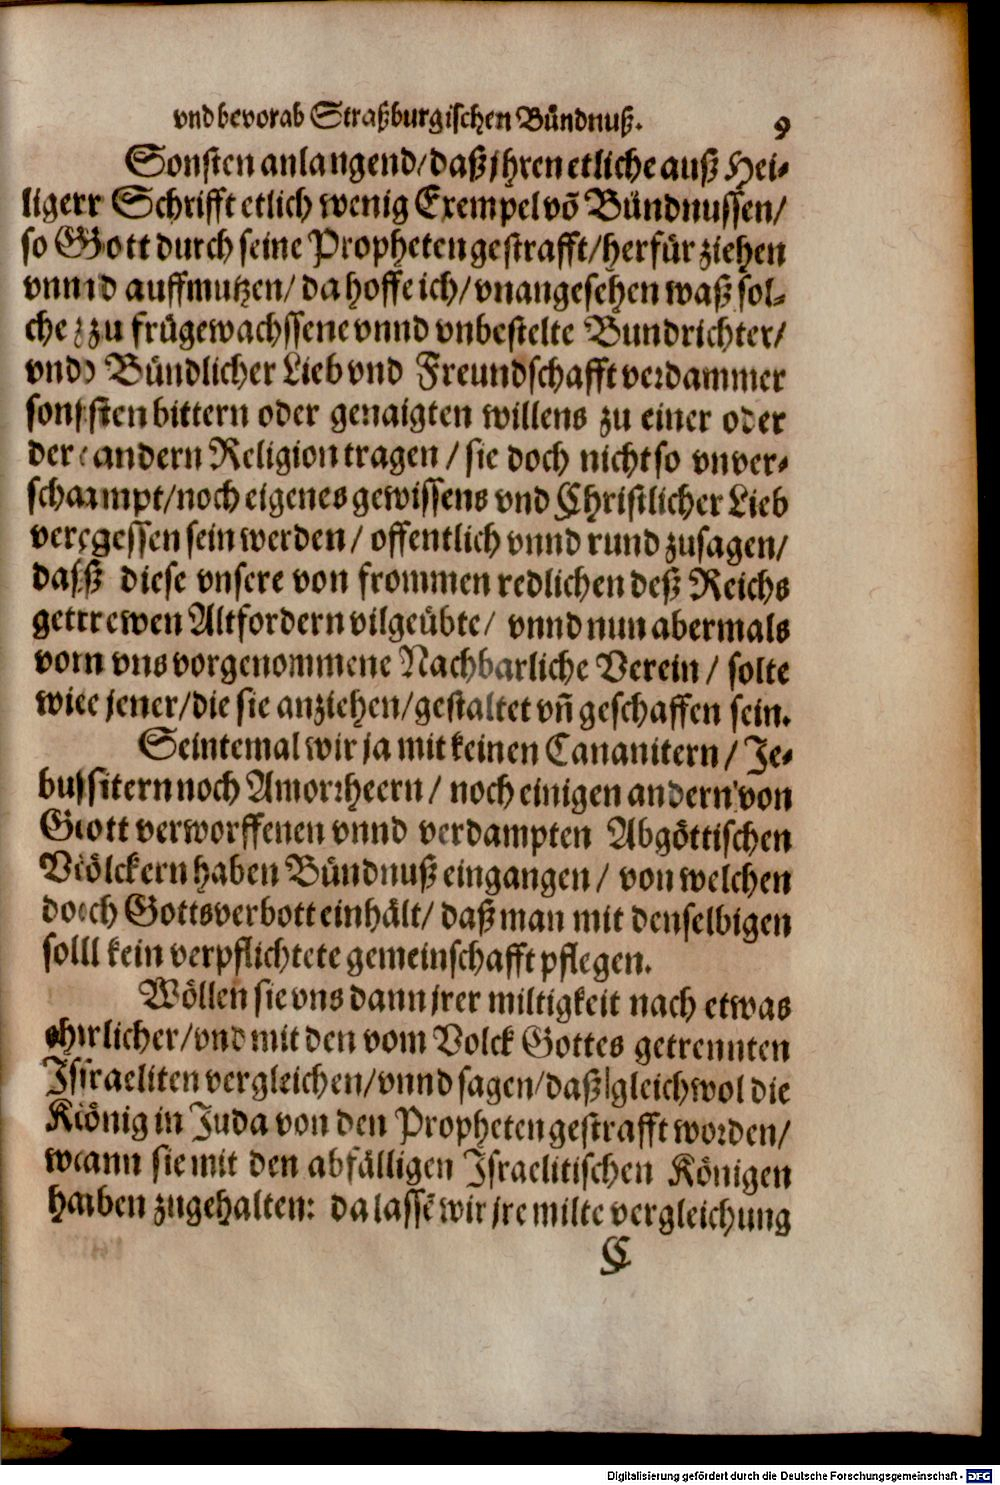 vnd bevorab Straßburgischen Bündnuß. 9
Sonsten anlangend/ daß jhren etliche auß Hei-
liger Schrifft etlich wenig Exempel võ Bündnussen/
so Gott durch seine Propheten gestrafft/ herfür ziehen
vnnd auffmutzen/ da hoffe ich/ vnangesehen waß sol-
che zu frügewachssene vnnd vnbestelte Bundrichter/
vnd Bündlicher Lieb vnd Freundschafft verdammer
sonsten bittern oder genaigten willens zu einer oder
der andern Religion tragen / sie doch nicht so vnver-
schampt/ noch eigenes gewissens vnd Christlicher Lieb
vergessen sein werden / offentlich vnnd rund zusagen/
daß diese vnsere von frommen redlichen deß Reichs
getrewen Altfordern vilgeübte/ vnnd nun abermals
von vns vorgenommene Nachbarliche Verein / solte
wie jener/ die sie anziehen/ gestaltet vñ geschaffen sein.
Seintemal wir ja mit keinen Cananitern / Je-
busitern noch Amorrheern / noch einigen andern von
Gott verworffenen vnnd verdampten Abgöttischen
Völckern haben Bündnuß eingangen / von welchen
doch Gotts verbott einhält/ daß man mit denselbigen
soll kein verpflichtete gemeinschafft pflegen.
Wöllen sie vns dann jrer miltigkeit nach etwas
ehrlicher/ vnd mit den vom Volck Gottes getrennten
Israeliten vergleichen/ vnnd sagen/ daß gleichwol die
König in Juda von den Propheten gestrafft worden/
wann sie mit den abfälligen Israelitischen Königen
haben zugehalten: da lassẽ wir jre milte vergleichung
C
Digitalisierung gefördert durch die Deutsche Forschungsgemeinschaft - DFG